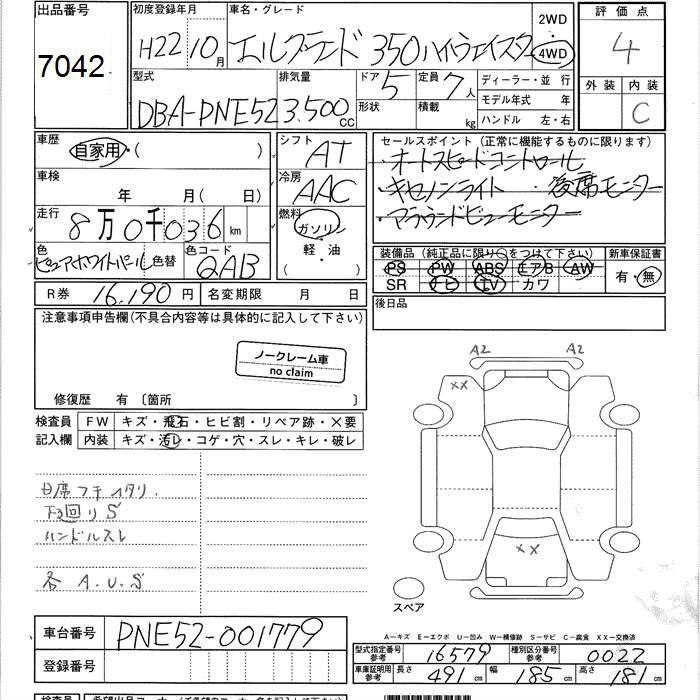 出品番号
7042
初度登録年月
H22 10月
車名・グレード
エルグランド 350ハイウェイスター
2WD
4WD
評価点
4
外装 内装
C
型式
DBA-PNE52
排気量
3.500CC
ドア 5
形状
定員 7人
積載 kg
ディーラー・並 行
モデル年式 年
ハンドル 左・右
車歴
自家用・( )
車検
年 月( 日)
走行
8万0千036km
色
ピュアホワイトパール
色替
色コード
QAB
シフト
AT
冷房
AAC
燃料
ガソリン
軽・油
( )
セールスポイント(正常に機能するものに限ります)
・オートスピードコントロール
・キセノンライト ・後席モニター
・アラウンドビューモニター
装備品(純正品に限り○をつけて下さい)
新車保証書
PS PW ABS エアB AW
SR ナビ TV カワ
有・無
R券 16,190円
名変期限 月 日
後日品
注意事項申告欄(不具合内容等は具体的に記入して下さい)
ノークレーム車
no claim
修復歴 有 〔箇所 〕
検査員
記入欄
FW キズ・飛石・ヒビ割・リペア跡・×要
内装 キズ・汚レ・コゲ・穴・スレ・キレ・破レ
下回りS
ハンドルスレ
各 A.U.S
A2 A2
XX
XX
スペア
車台番号
PNE52-001779
登録番号
A−キズ E−エクボ U−凹み W−補修跡 S−サビ C−腐食 XX−交換済
型式指定番号
参考
16579
種別区分番号
参考
0022
車庫証明用
参考
長さ 491cm
幅 185cm
高さ 181cm
検査員